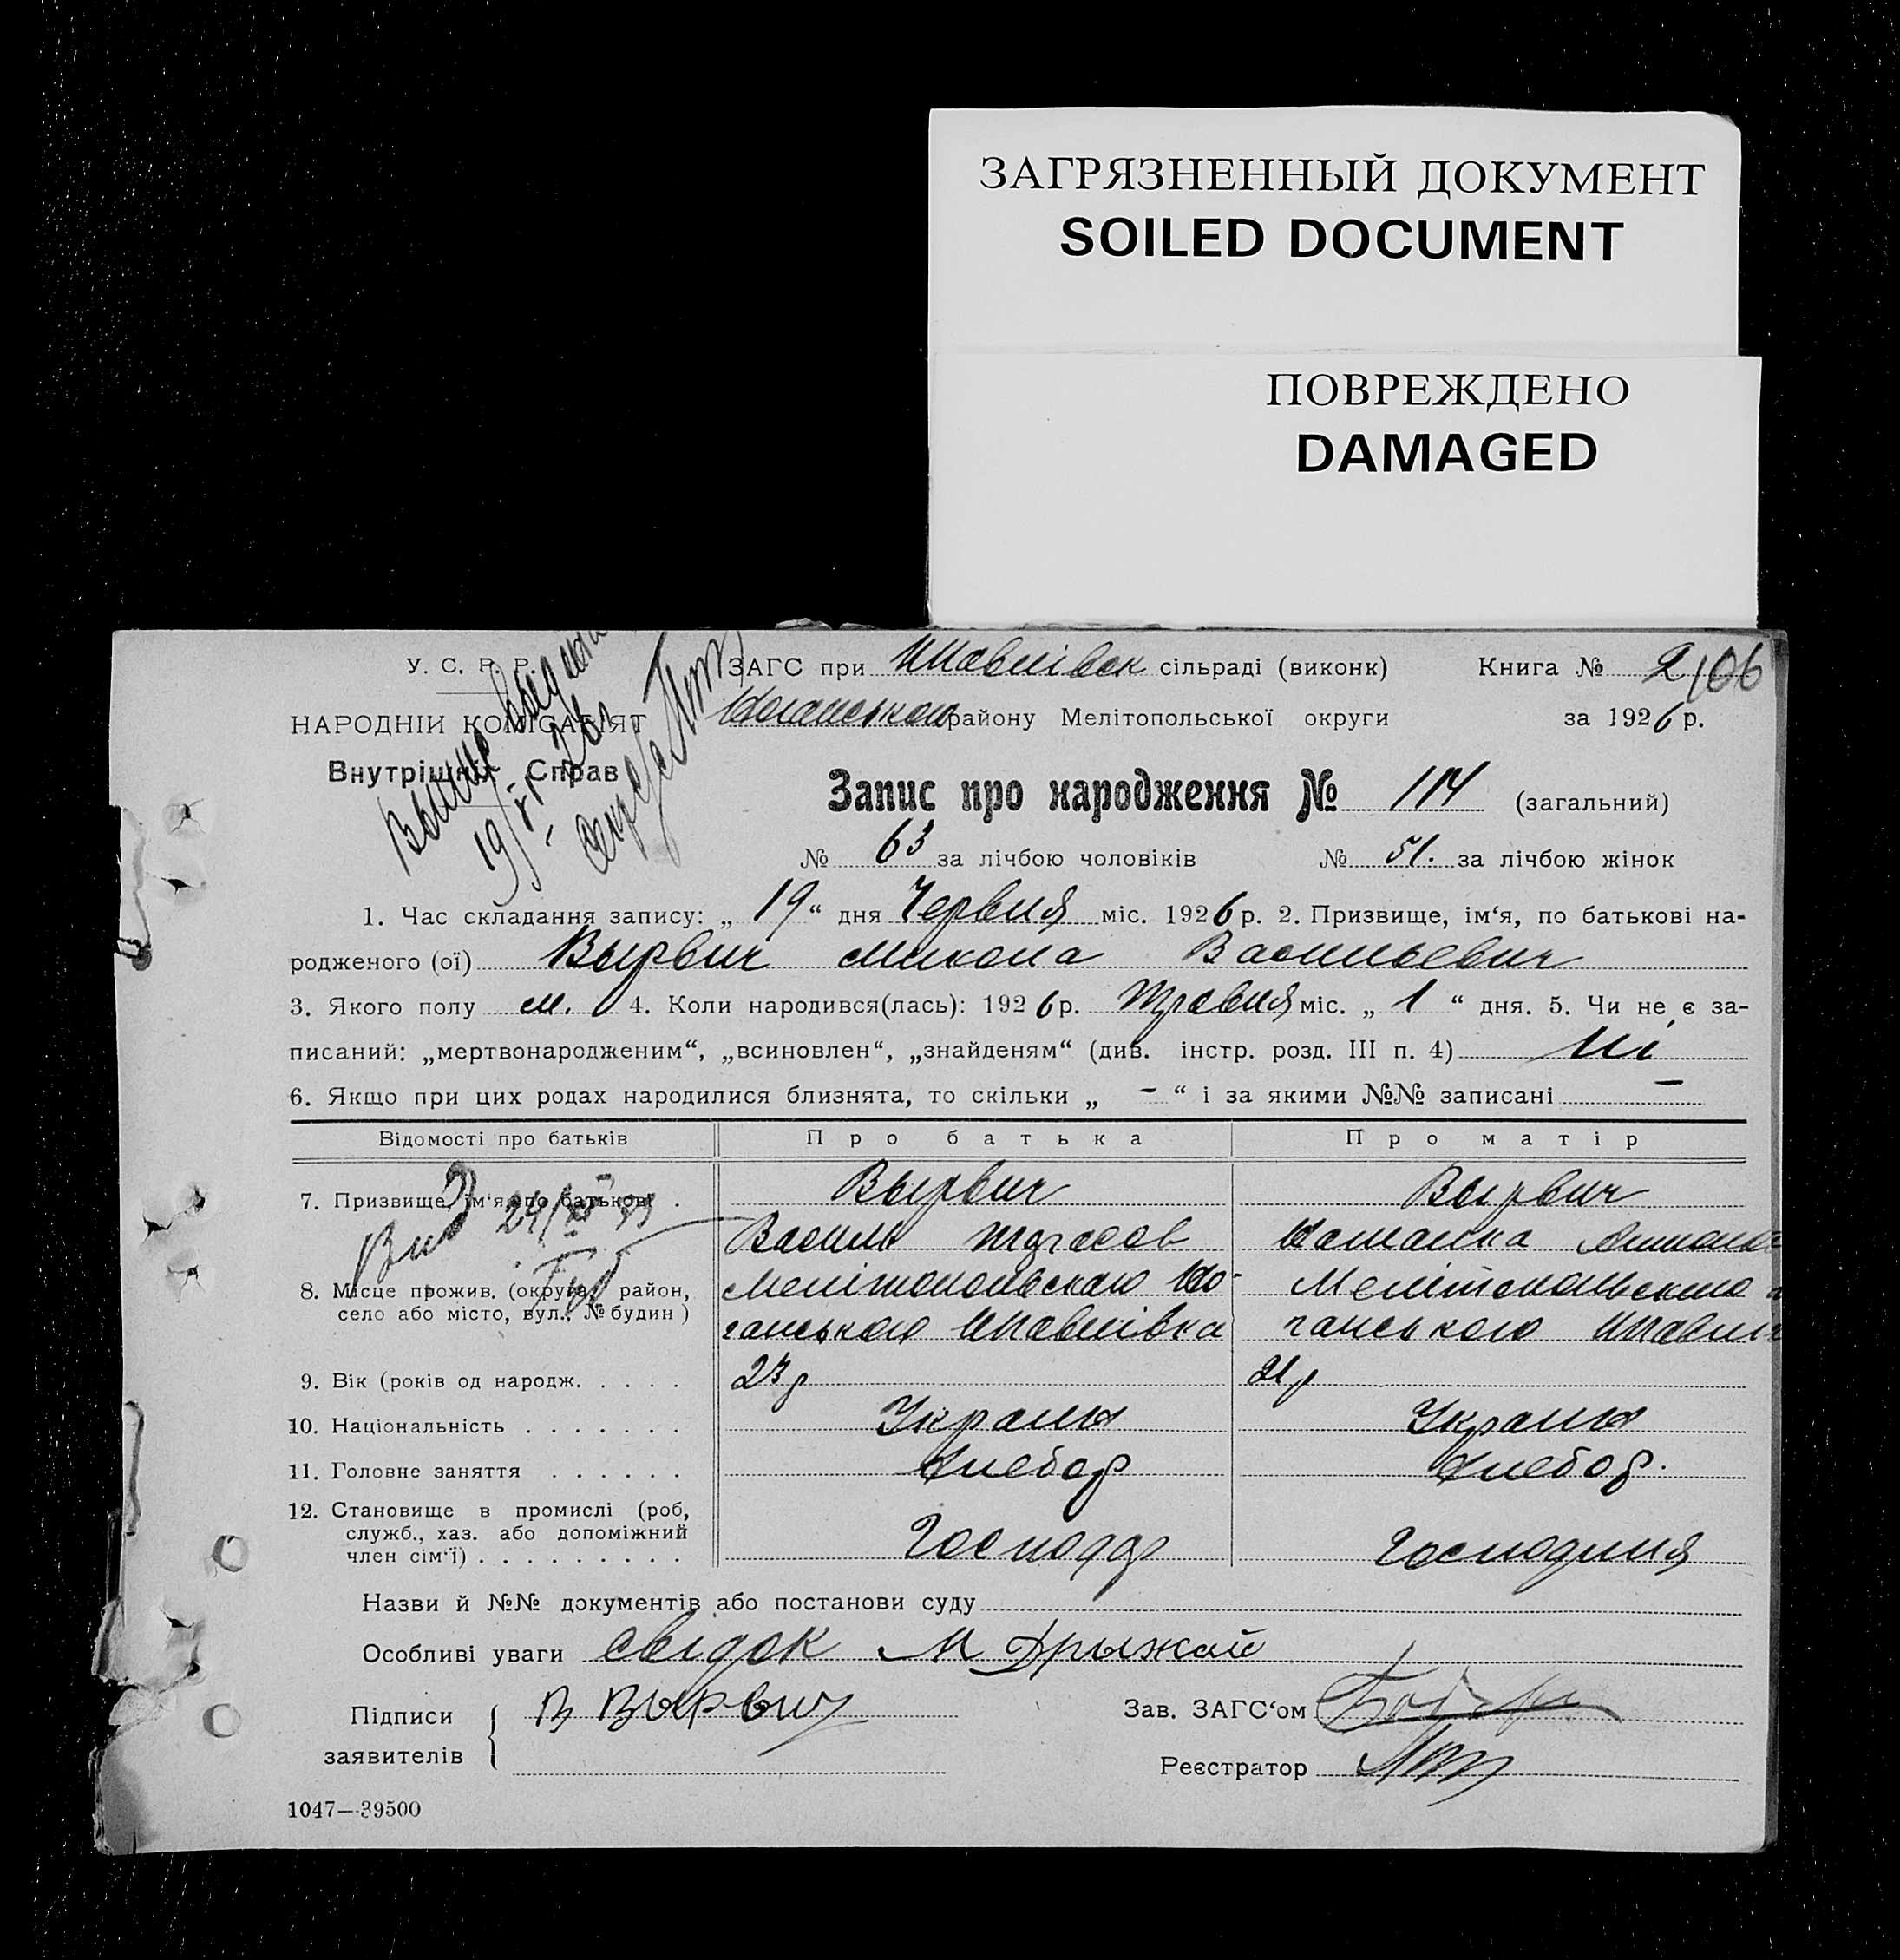 ЗАГРЯЗНЕННЫЙ ДОКУМЕНТ
SOILED DOCUMENT
ПОВРЕЖДЕНО
DAMAGED
У. С. Р. Р.
ЗАГС при сільраді (виконк) Книга № 2 106
НАРОДНІЙ КОМІСАРІЯТ
району Мелітопольської округи за 1926 р.
Внутрішніх Справ
Запис про народження № 114 (загальний)
№ 63 за лічбою чоловіків № 51. за лічбою жінок
1. Час складання запису: „ 19 “ дня Червня міс. 1926 р. 2. Призвище, ім‘я, по батькові на-
родженого (ої) Вырвич Микола Васильевич
3. Якого полу м. 4. Коли народився(лась): 1926 р. Травня міс. „ 1 “ дня. 5. Чи не є за-
писаний: „мертвонародженим“, „всиновлен“, „знайденям“ (див. інстр. розд. III п. 4) Ні
6. Якщо при цих родах народилися близнята, то скільки „ – “ і за якими №№ записані –
Відомості про батьків Про батька Про матір
7. Призвище, ім‘я, по батькові . Вырвич Вырвич
Василь Тарасов
8. Місце прожив. (округа, район, Мелітопольского
село або місто, вул., № будин) ганського ганського
9. Вік (років од народж. . . . . 23 р 21 р
10. Національність . . . . . . . Украин Украин
11. Головне заняття . . . . . . Хлебор Хлебор.
12. Становище в промислі (роб,
служб., хаз. або допоміжний
член сім‘ї) . . . . . . . . . Господар Господиня
Назви й №№ документів або постанови суду
Особливі уваги свідок М Дрыжай
Підписи В Вырвич Зав. ЗАГС‘ом
заявителів
Реєстратор
1047—39500